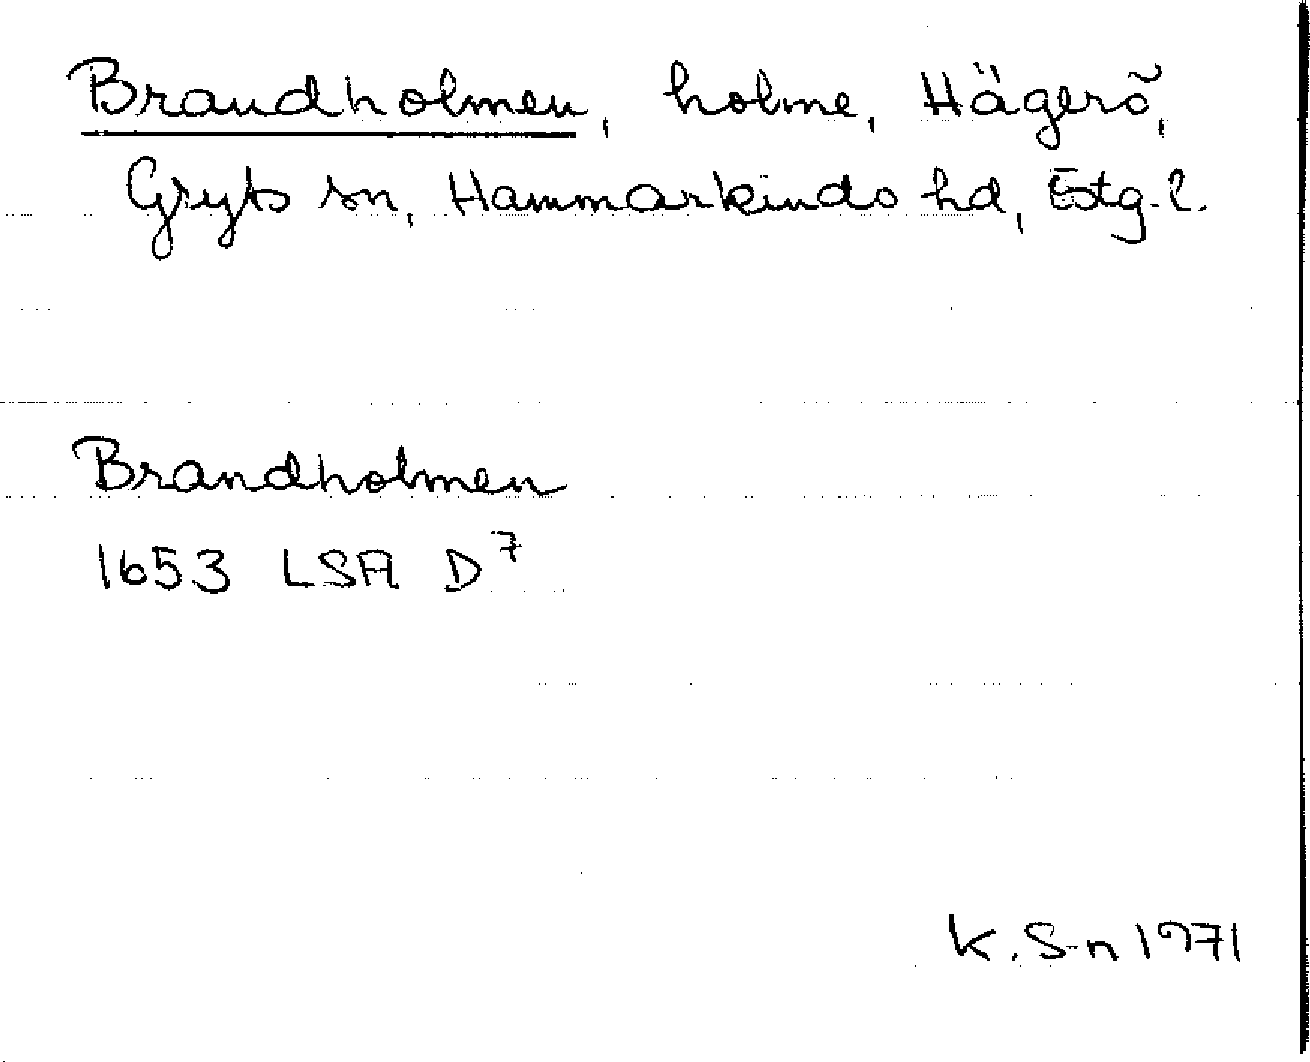 Brandholmen, holme, Hägerö,
Gryts sn, Hammarkinds hd, Östg.l.
Brandholmen
1653 LSA D7
K. S-n 1971